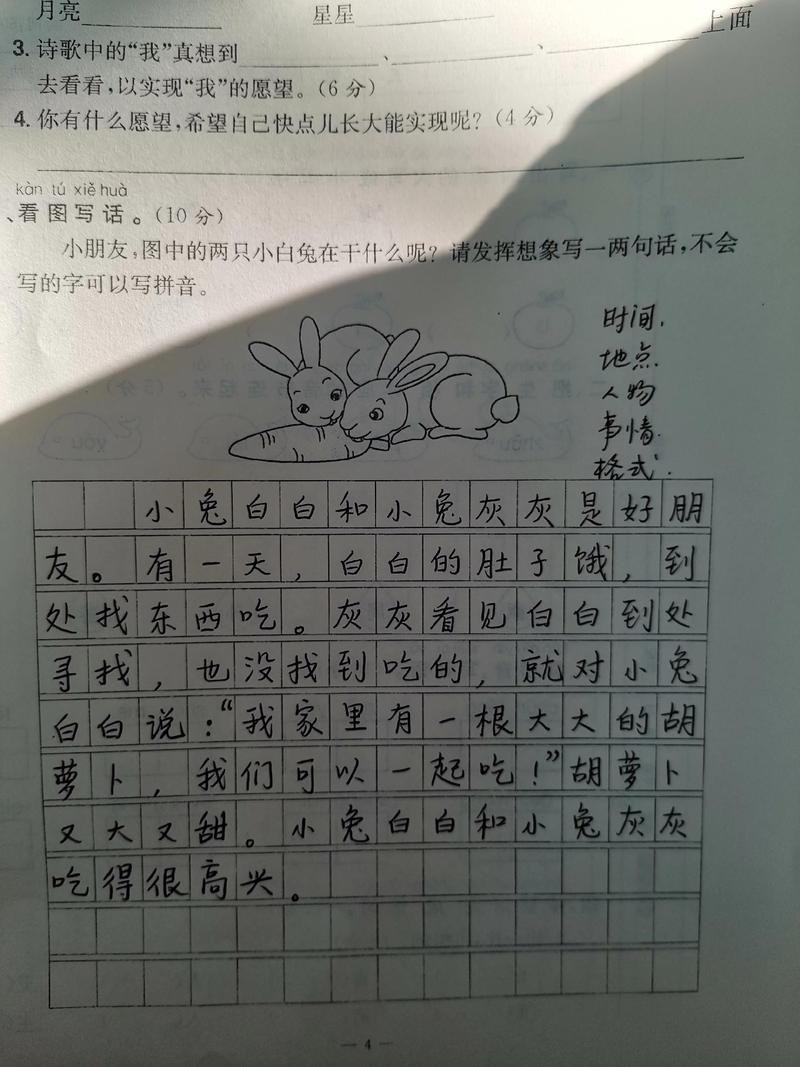 月亮 星星 上面
3. 诗歌中的“我”真想到 、 、
去看看,以实现“我”的愿望。(6分)
4. 你有什么愿望,希望自己快点儿长大能实现呢?(4分)
kàn tú xiě huà
、看图写话。(10分)
小朋友,图中的两只小白兔在干什么呢?请发挥想象写一两句话,不会
写的字可以写拼音。
时间.
地点.
人物
事情.
格式.
小兔白白和小兔灰灰是好朋
友。有一天,白白的肚子饿,到
处找东西吃。灰灰看见白白到处
寻找,也没找到吃的,就对小兔
白白说:“我家里有一根大大的胡
萝卜,我们可以一起吃!”胡萝卜
又大又甜。小兔白白和小兔灰灰
吃得很高兴。
— 4 —